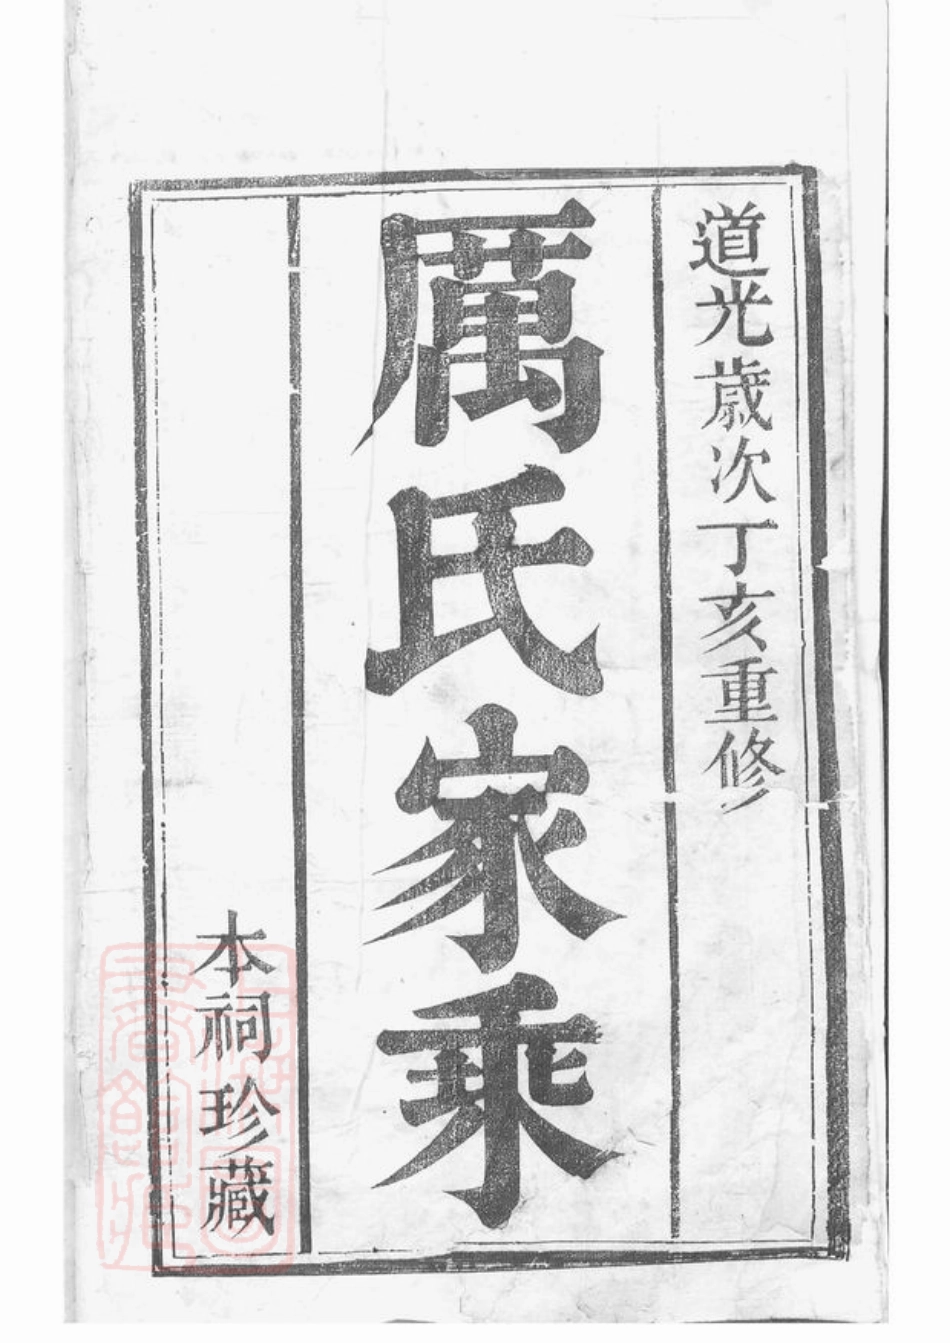 道光歲次丁亥重修
厲氏家乘
本祠珍藏